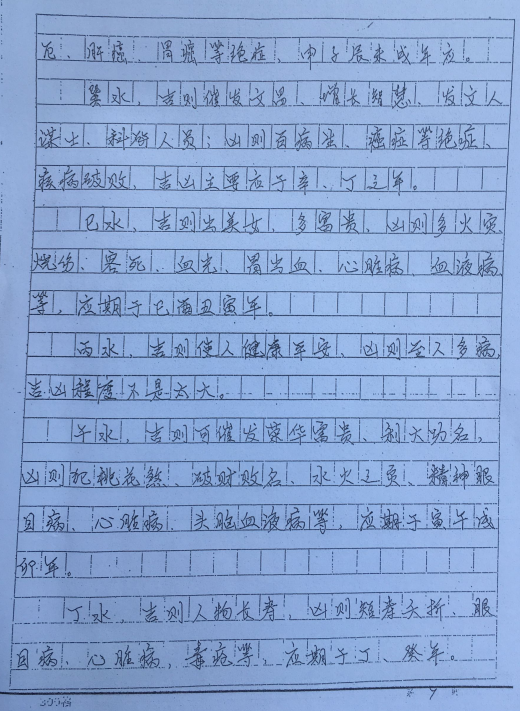 厄、肝癌、胃癌等绝症、申子辰未戌年应。
巽水、吉则催发文昌、增长智慧、发文人
谋士、科研人员;凶则百病生、癌症等绝症、
痰病破败、吉凶主要应于辛、丁之年。
巳水、吉则出美女、多富贵、凶则多火灾、
烧伤、恶死、血光、胃出血、心脏病、血液病、
等,应期于巳酉丑寅年。
丙水、吉则使人健康平安、凶则至人多病,
吉凶程度不是太大。
午水、吉则可催发荣华富贵、利大功名,
凶则犯桃花煞、破财败名、水火之灾、精神眼
目病、心脏病、头脑血液病等,应期于寅午戌
卯年。
丁水、吉则人物长寿,凶则短寿夭折、眼
目病、心脏病,毒疮等,应期于丁、癸年。
第 9 页